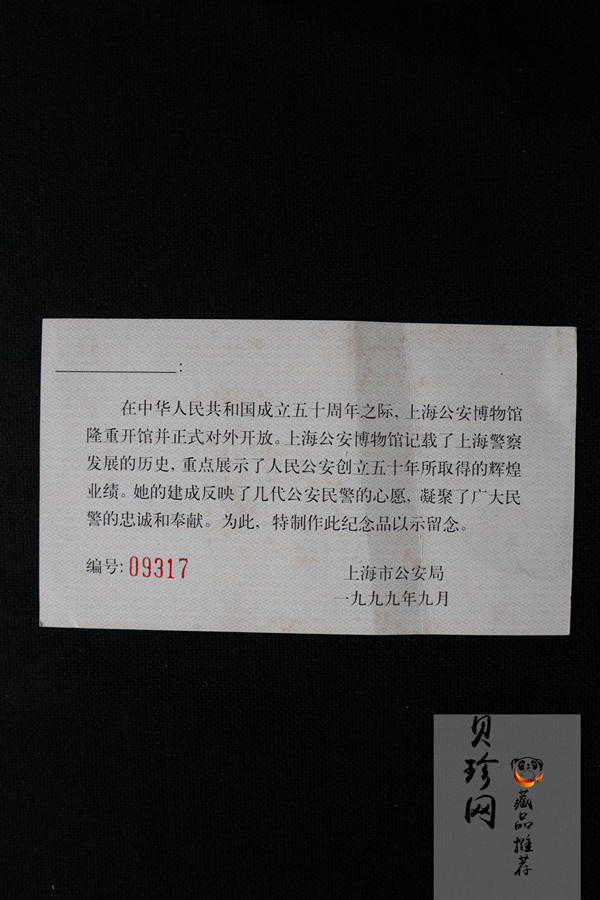 :
在中华人民共和国成立五十周年之际，上海公安博物馆
隆重开馆并正式对外开放。上海公安博物馆记载了上海警察
发展的历史，重点展示了人民公安创立五十年所取得的辉煌
业绩。她的建成反映了几代公安民警的心愿，凝聚了广大民
警的忠诚和奉献。为此，特制作此纪念品以示留念。
编号：09317
上海市公安局
一九九九年九月
贝珍网
藏品推荐